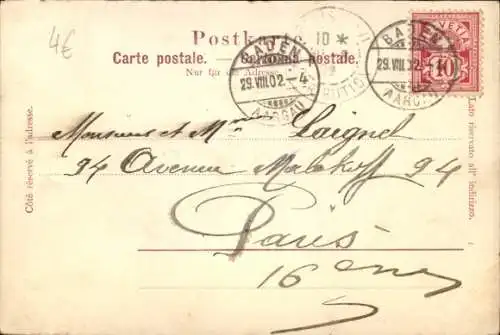 4€
Postkarte.
Carte postale. Cartolina postale.
Nur für die Adresse.
BADEN
29.VIII.02.-4
AARGAU
10 *
BADEN
29.VIII.02
AARGAU
HELVETIA
10
Côté réservé à l'adresse.
Lato riservato all' indirizzo.
Monsieur et Mme Laignel
94 Avenue Malakoff 94
Paris
16 ème